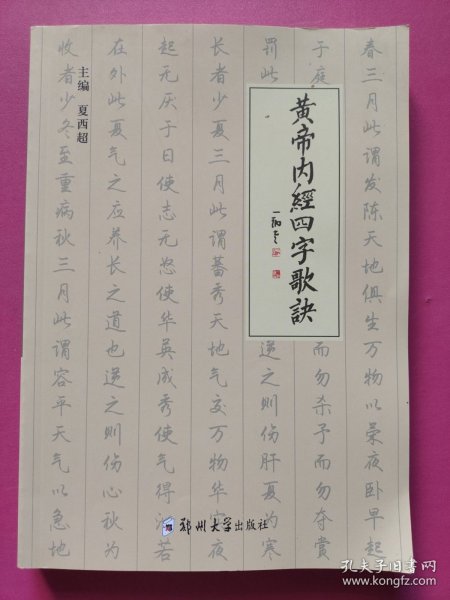 黄帝内經四字歌訣
主编 夏西超
春三月此谓发陈天地俱生万物以荣夜卧早起
于庭
而勿杀予而勿夺赏
罚此
逆之则伤肝夏为寒
长者少夏三月此谓蕃秀天地气交万物华实夜
起无厌于日使志无怒使华英成秀使气得泄若
在外此夏气之应养长之道也逆之则伤心秋为
收者少冬至重病秋三月此谓容平天气以急地
郑州大学出版社
孔夫子旧书网
www.kongfz.com